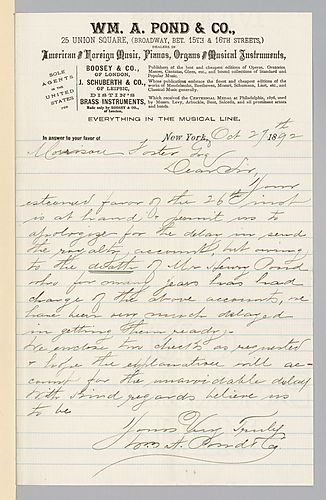 WM. A. POND & CO.,
25 UNION SQUARE, (BROADWAY, BET. 15TH & 16TH STREETS,)
DEALERS IN
American and Foreign Music, Pianos, Organs and Musical Instruments,
SOLE AGENTS IN THE UNITED STATES FOR
BOOSEY & CO.,
OF LONDON,
J. SCHUBERTH & CO.
OF LEIPSIC,
DISTIN'S
BRASS INSTRUMENTS,
Made only by BOOSEY & CO.,
of London.
Publishers of the best and cheapest editions of Operas, Oratorios
Masses, Cantatas, Glees, etc., and bound collections of Standard and
Popular Music.
Whose publications embrace the finest and cheapest editions of the
works of Mendelssohn, Beethoven, Mozart, Schumann, Liszt, etc., and
Classical Music generally.
Which received the CENTENNIAL MEDAL at Philadelphia, 1876, used
by Messrs. Levy, Arbuckle, Bent, and all prominent artists
and bands.
EVERYTHING IN THE MUSICAL LINE.
In answer to your favor of
New York, Oct 27th 1892
Morrison Foster Esq
Dear Sir,
Your
esteemed favor of the 26th inst
is at hand & permit us to
apologize for the delay in send
the royalty account, but owing
to the death of Mr Henry Pond
who for many years has had
charge of the above account, we
have been very much delayed
in getting them ready.
We enclose two checks as requested
& hope the explanation will ac-
count for the unavoidable delay
With kind regards believe us
to be
Yours Very Truly
Wm A. Pond & Co.